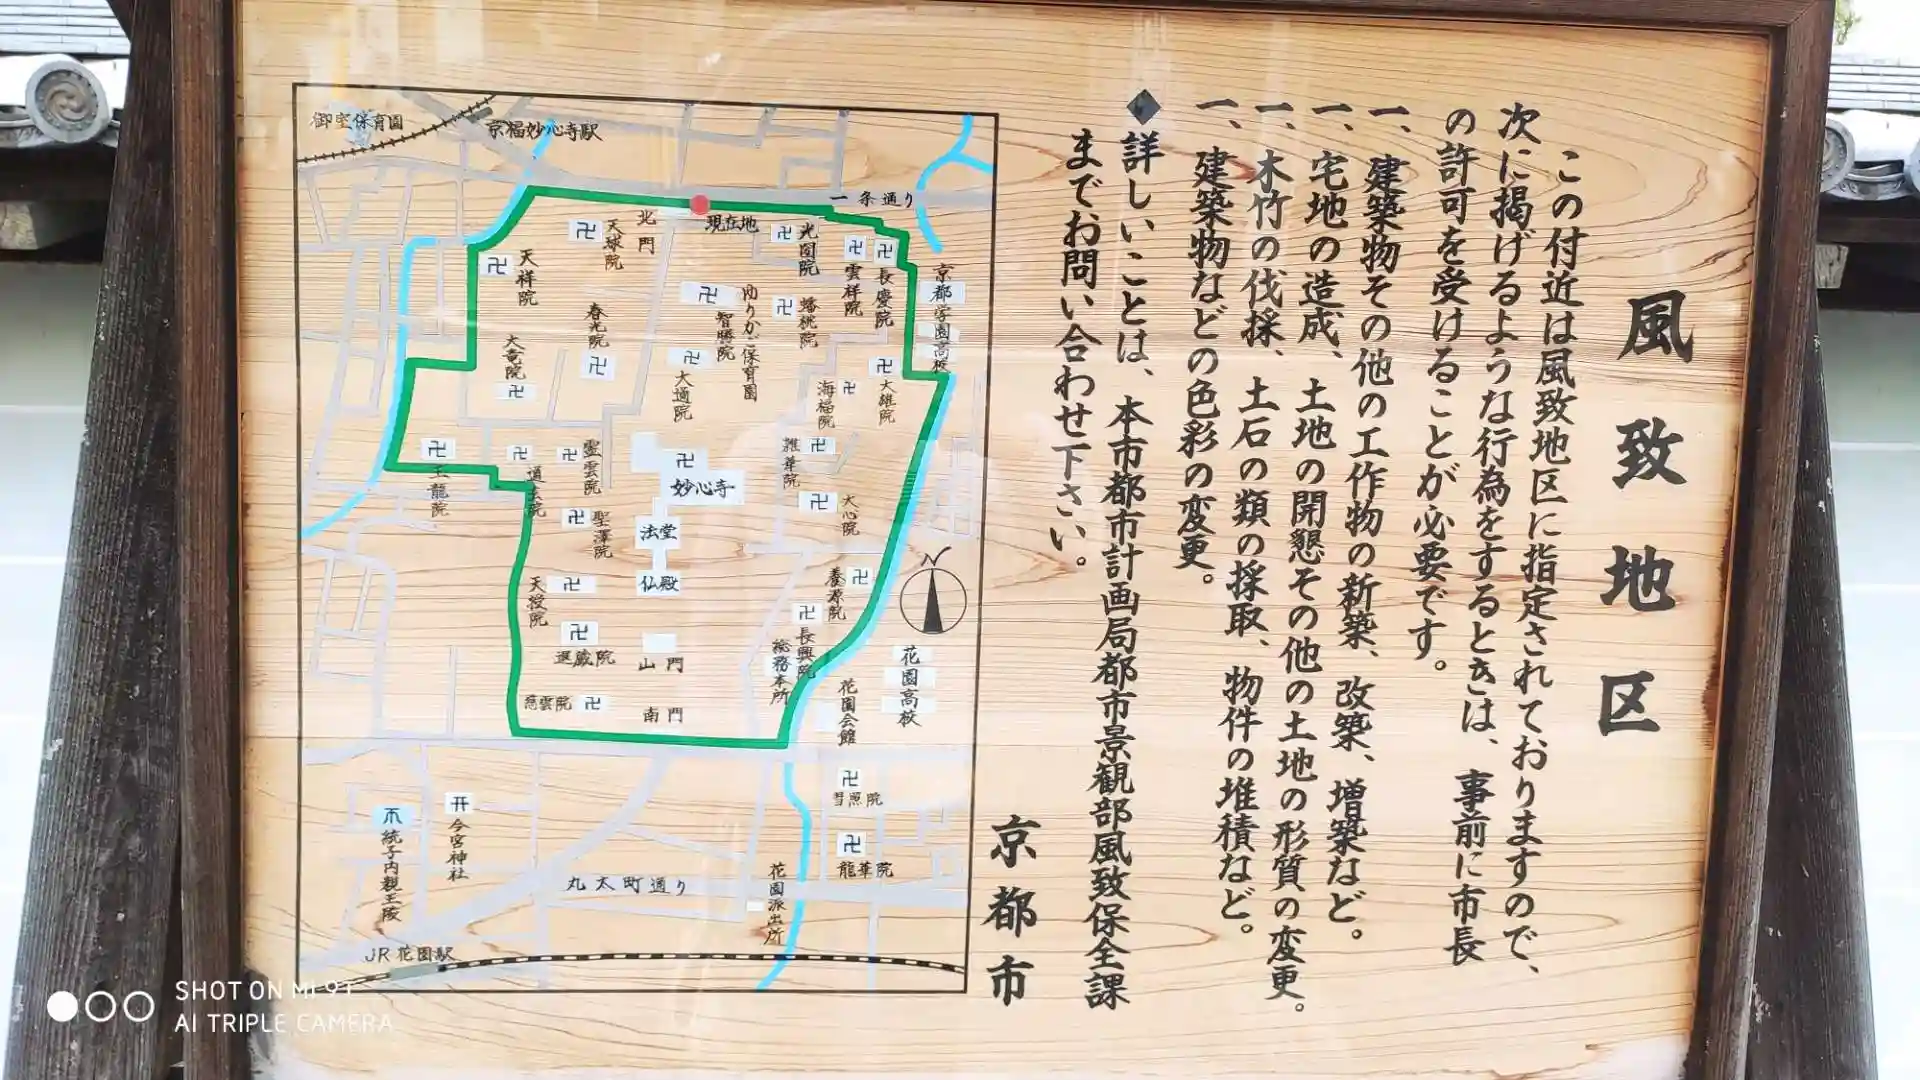 風致地区
この付近は風致地区に指定されておりますので、
次に掲げるような行為をするときは、事前に市長
の許可を受けることが必要です。
一、建築物その他の工作物の新築、改築、増築など。
一、宅地の造成、土地の開懇その他の土地の形質の変更。
一、木竹の伐採、土石の類の採取、物件の堆積など。
一、建築物などの色彩の変更。
◆詳しいことは、本市都市計画局都市景観部風致保全課
までお問い合わせ下さい。
京都市
御室保育園
京福妙心寺駅
一条通り
現在地
北門
天球院
光国院
雲祥院
長慶院
天祥院
京都学園高校
春光院
ゆりかご保育園
智勝院
蟠桃院
大竜院
大通院
海福院
大雄院
玉龍院
道玄院
霊雲院
雑華院
妙心寺
聖澤院
大心院
法堂
仏殿
天授院
養源院
長興院
総務本所
退蔵院
山門
花園会館
花園高校
慈雲院
南門
龍華院
今宮神社
統子内親王陵
丸太町通り
花園派出所
JR花園駅
SHOT ON MI 9T
AI TRIPLE CAMERA